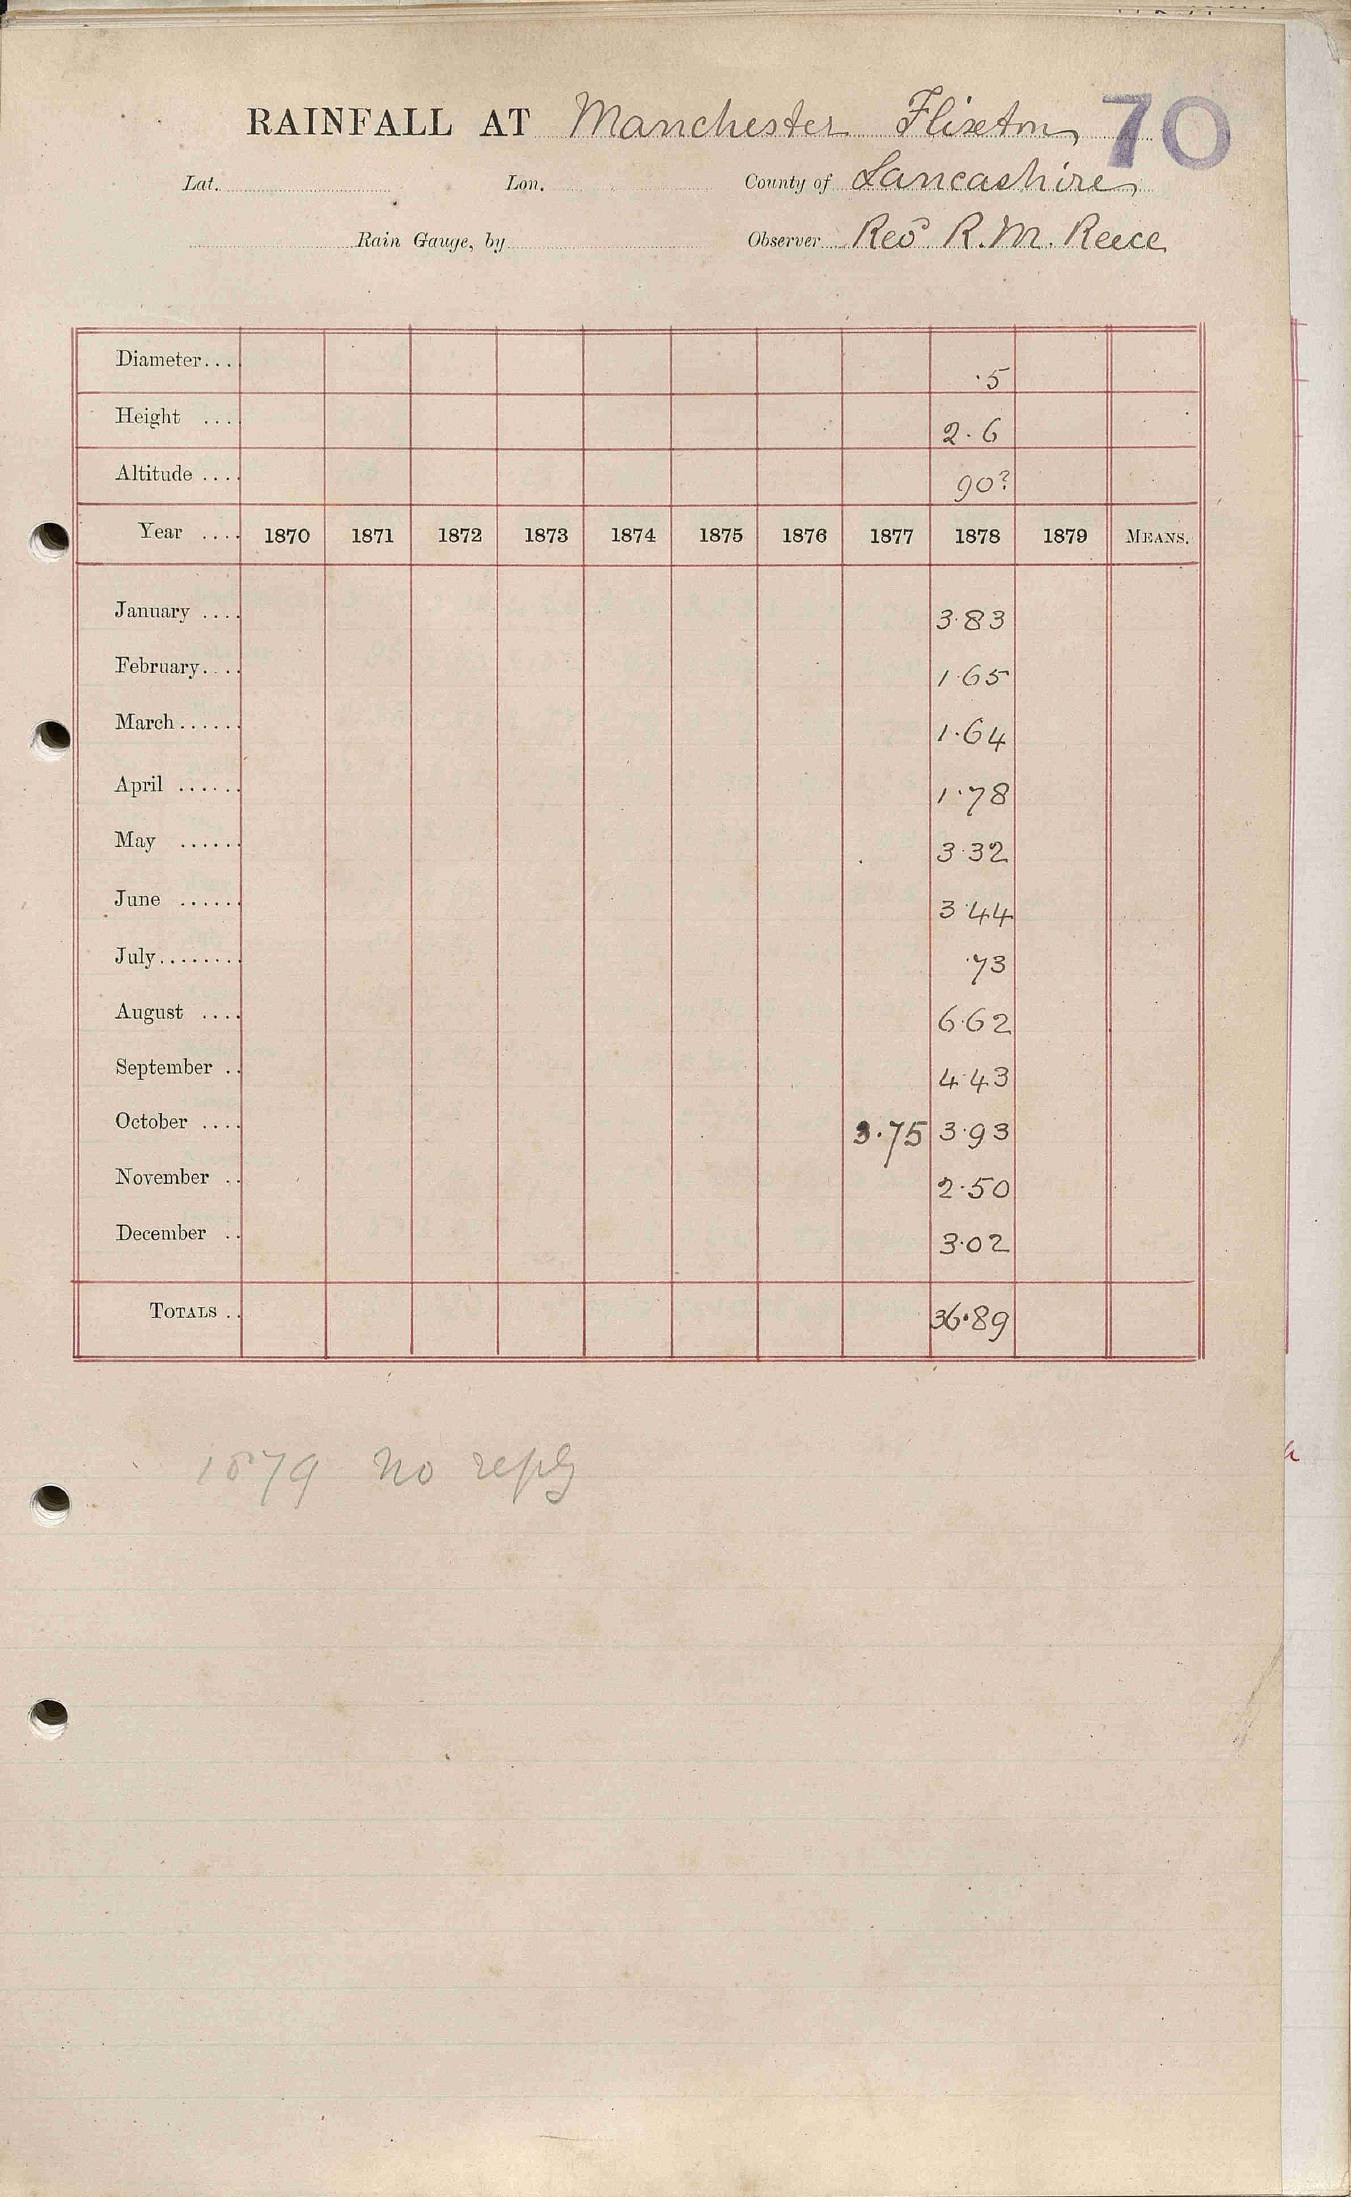 RAINFALL AT Manchester Flixton, 70
Lat. Lon. County of Lancashire,
Rain Gauge, by Observer Revd R. M. Reece
Diameter.... .5
Height .... 2.6
Altitude .... 90?
Year .... 1870 1871 1872 1873 1874 1875 1876 1877 1878 1879 MEANS.
January .... 3.83
February.... 1.65
March...... 1.64
April ...... 1.78
May ...... 3.32
June ...... 3.44
July........ .73
August .... 6.62
September .. 4.43
October .... 3.75 3.93
November .. 2.50
December .. 3.02
TOTALS .. 36.89
1879 no reply